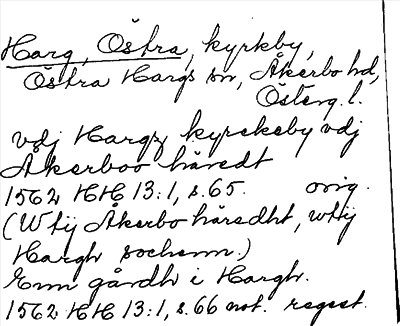 Harg, Östra, kyrkby,
Östra Hargs sn, Åkerbo hd,
Österg. l.
vdj Hargz kyrckeby vdj
Åkerboo häredt
1562 HH 13:1, s. 65. orig.
(Wtij Åkerbo häradht, wttij
Hargh sochenn.)
Enn gårdh i Hargh.
1562 HH 13:1, s. 66 not. regest.